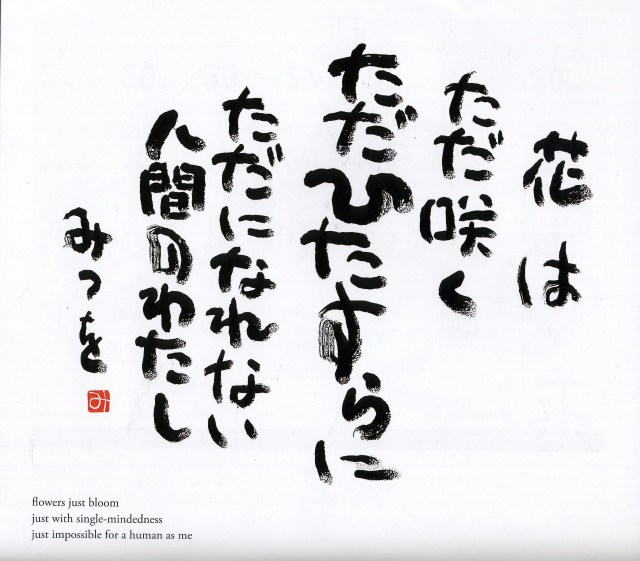 花は
ただ咲く
ただひたすらに
ただになれない
人間のわたし
みつを
み
flowers just bloom
just with single-mindedness
just impossible for a human as me